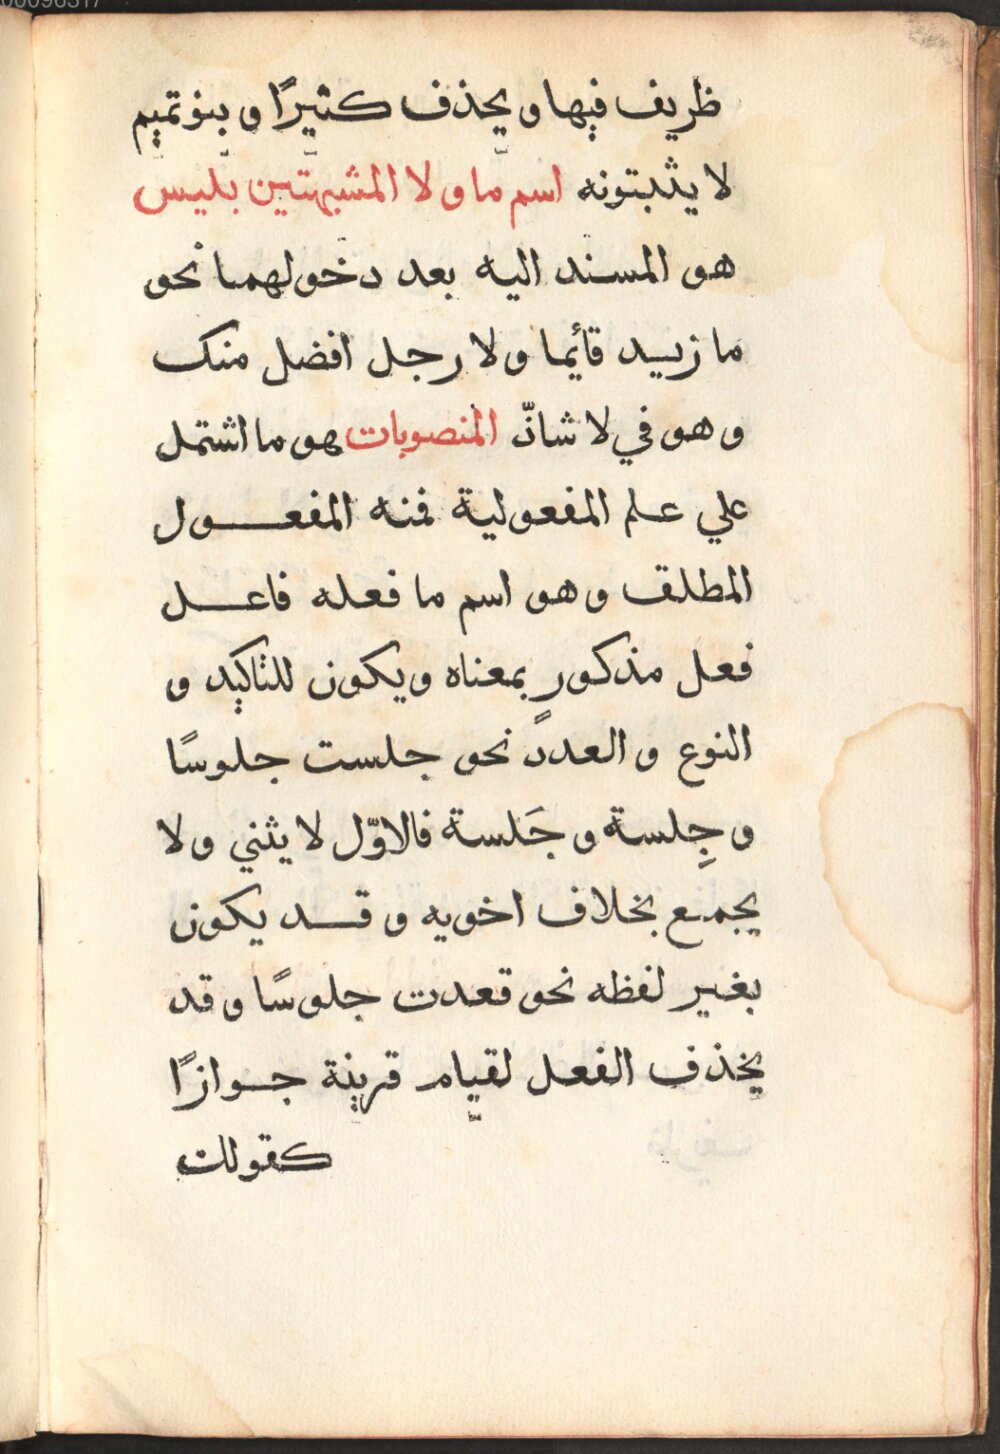 ظريف فيها و يحذف كثيرًا و بنو تميم
لا يثبتونه اسم ما و لا المشبهتين بليس
هو المسند اليه بعد دخولهما نحو
ما زيد قائما و لا رجل افضل منك
و هو في لا شاذّ المنصوبات هو ما اشتمل
علي علم المفعولية فمنه المفعول
المطلق و هو اسم ما فعله فاعل
فعل مذكور بمعناه و يكون للتاكيد و
النوع و العدد نحو جلست جلوسًا
و جِلسة و جَلسة فالاوّل لا يثني و لا
يجمع بخلاف اخويه و قد يكون
بغير لفظه نحو قعدت جلوسًا و قد
يحذف الفعل لقيام قرينة جوازًا
كقولك